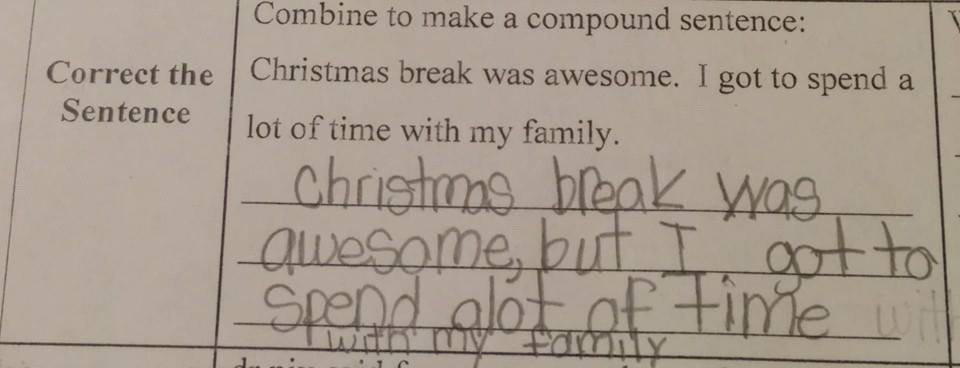 Combine to make a compound sentence:
Correct the
Sentence
Christmas break was awesome. I got to spend a
lot of time with my family.
Christmas break was
awesome, but I got to
spend alot of time with
with my family